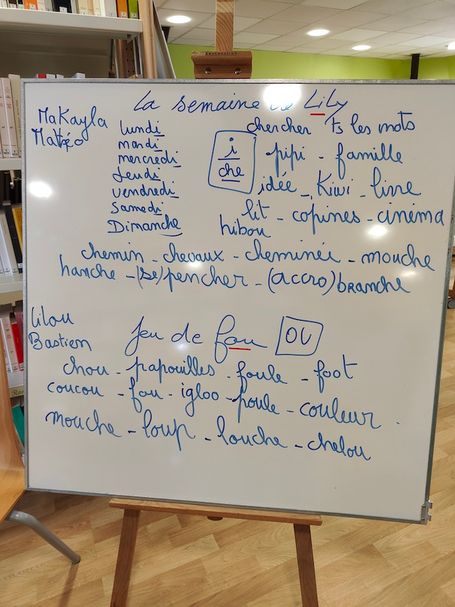 La semaine de LiLy
MaKayla
Matéo
lundi
mardi
mercredi
Jeudi
vendredi
samedi
Dimanche
chercher ts les mots
i
che
pipi - famille
idée - Kiwi - livre
lit - copines - cinéma
hibou
chemin - chevaux - cheminée - mouche
hanche - (se) pencher - (accro) branche
Lilou
Bastien
Jeu de fou OU
chou - papouilles - foule - foot
coucou - fou - igloo - poule - couleur.
mouche - loup - louche - chelou